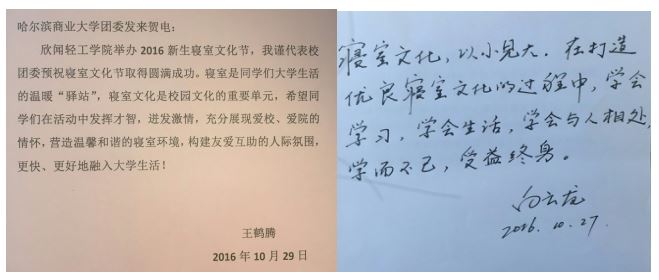 哈尔滨商业大学团委发来贺电：
欣闻轻工学院举办 2016 新生寝室文化节，我谨代表校
团委预祝寝室文化节取得圆满成功。寝室是同学们大学生活
的温暖“驿站”，寝室文化是校园文化的重要单元，希望同
学们在活动中发挥才智，迸发激情，充分展现爱校、爱院的
情怀，营造温馨和谐的寝室环境，构建友爱互助的人际氛围，
更快、更好地融入大学生活！
王鹤腾
2016 年 10 月 29 日
寝室文化，以小见大。在打造
优良寝室文化的过程中，学会
学习，学会生活，学会与人相处，
学而不已，受益终身。
2016.10.27.